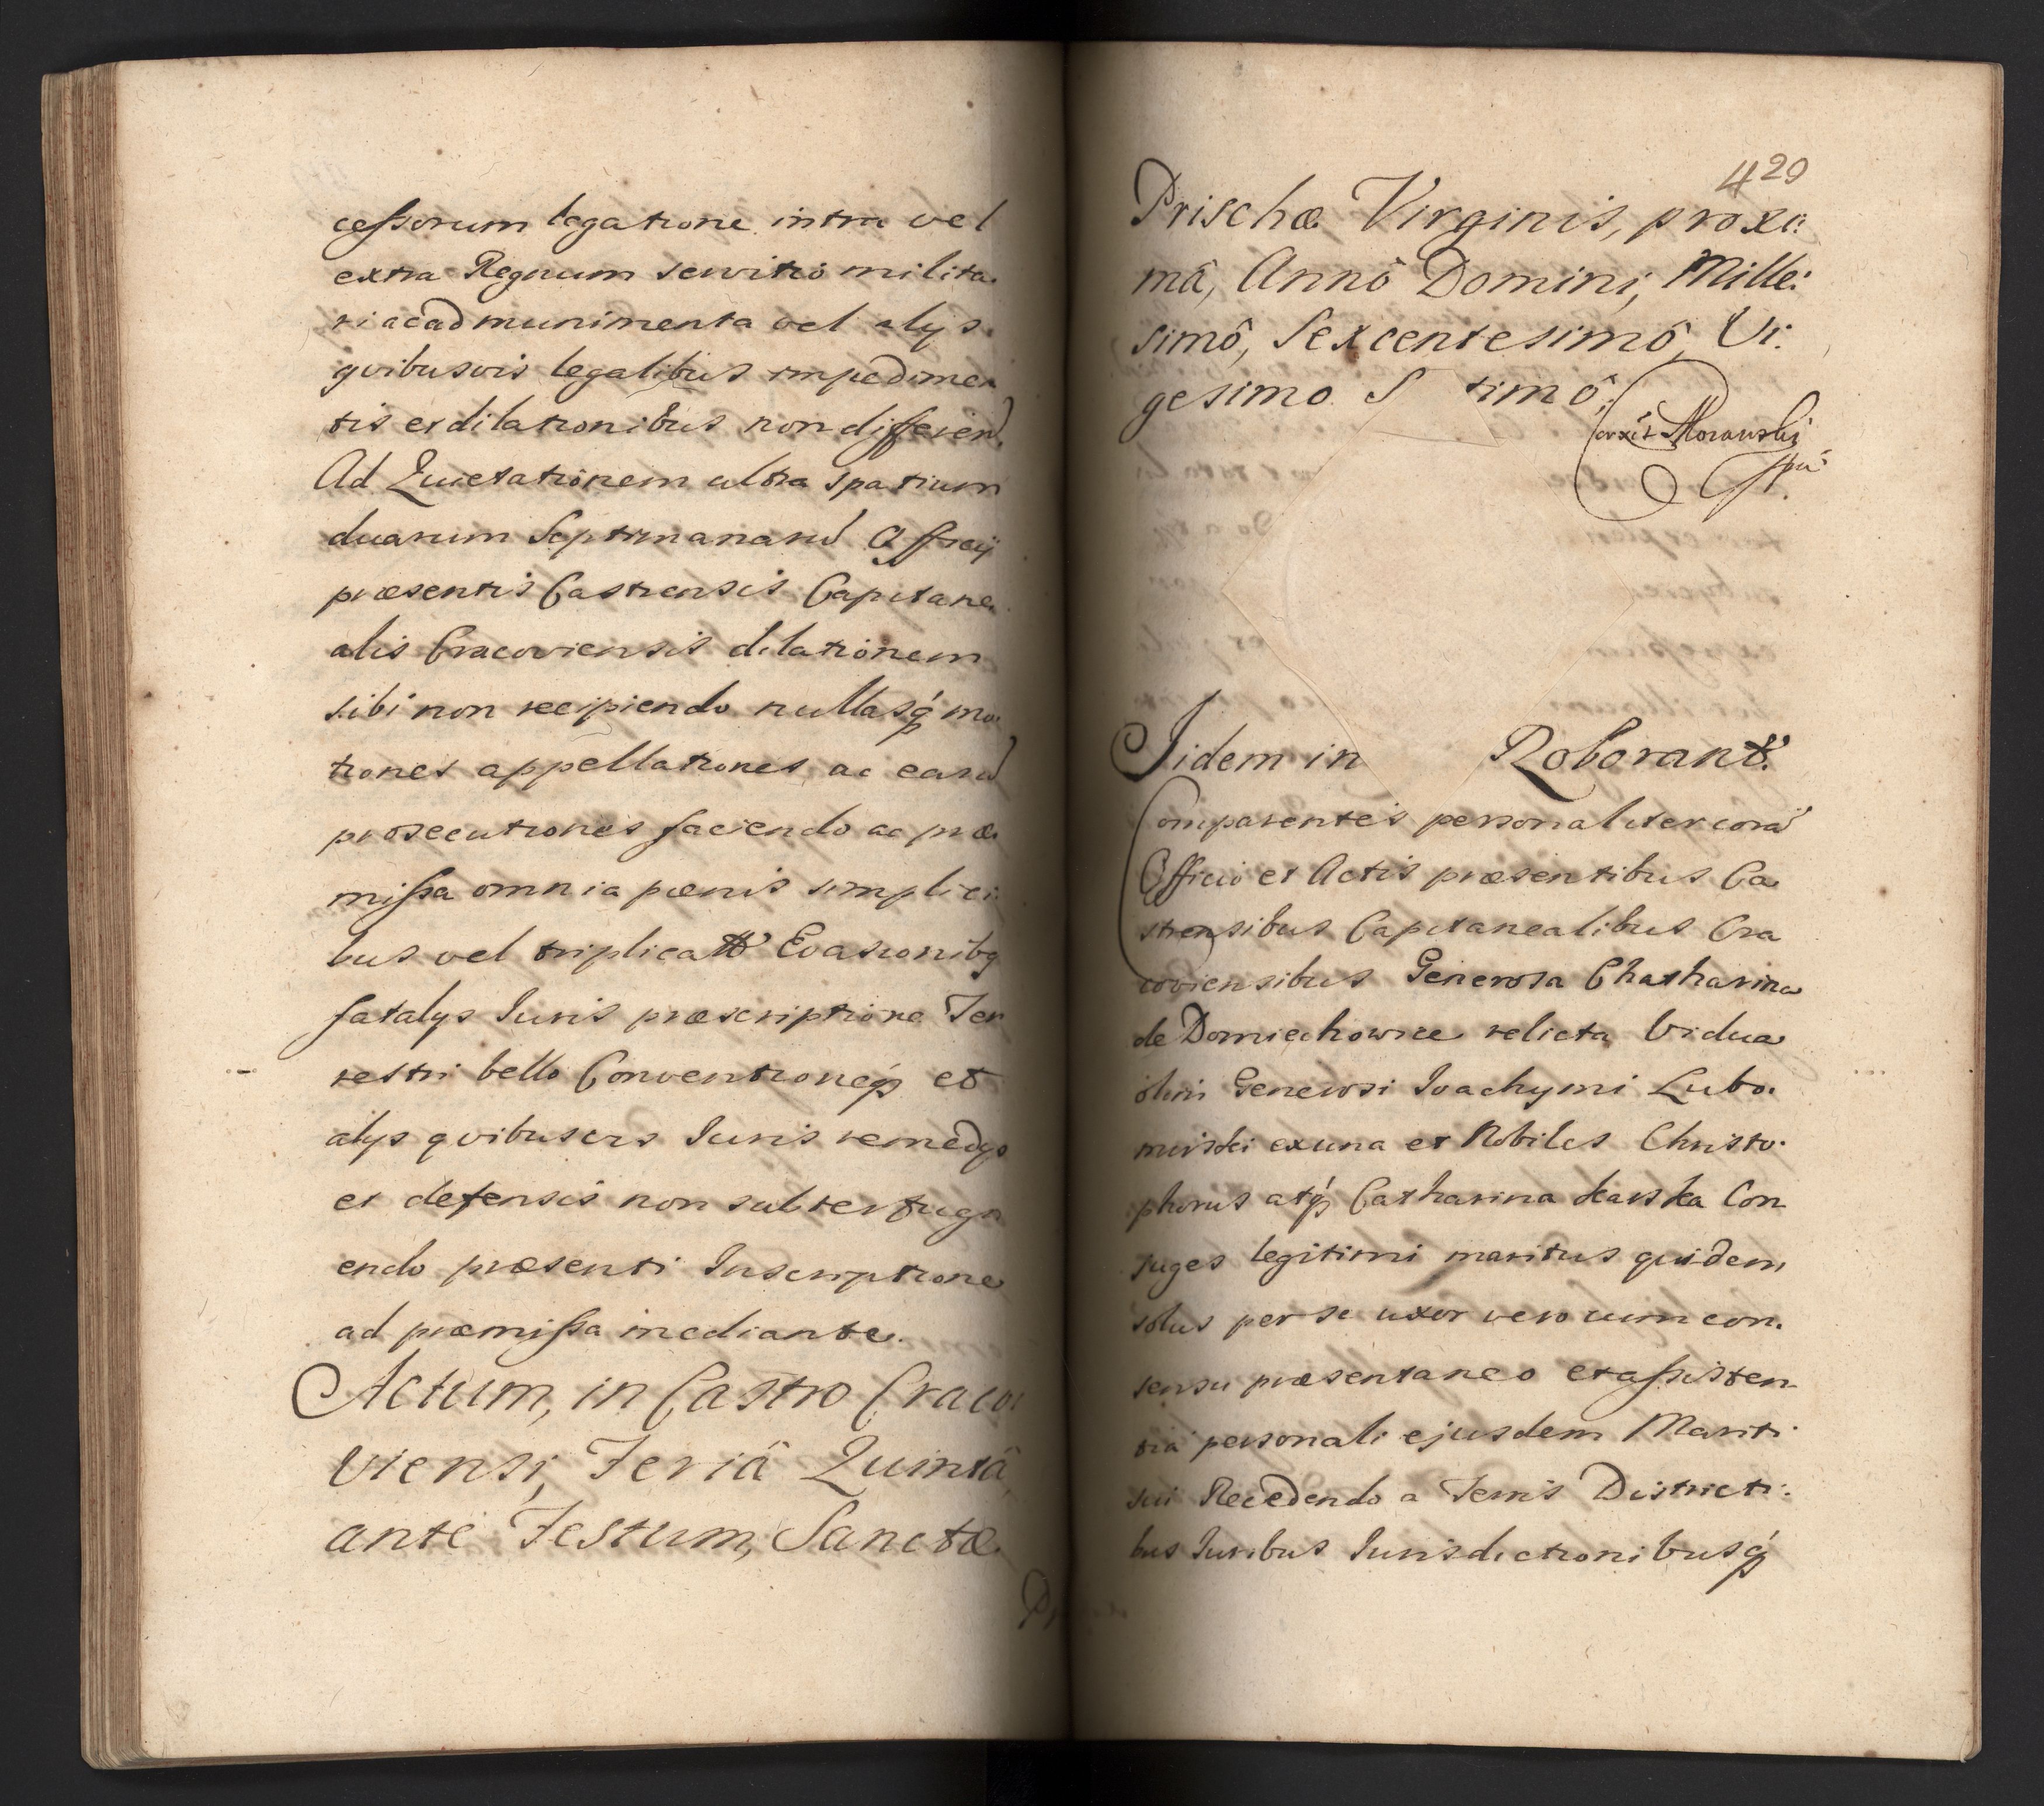 cessorum legatione intra vel
extra Regnum servitio milita:
ri ac ad munimenta vel alijs
qvibusvis legalibus impedimen
tis et dilationibus non differen.
Ad Quietationem ultra spatium
duarum Septimanaru Officij
præsentis Castrensis Capitane
alis Cracoviensis dilationem
sibi non recipiendo nullasq́ mo
tiones appellationes ac earu
prosecutiones faciendo ac præ
missa omnia pœnis simplici:
bus vel triplicatt Evasionibq
fatalijs Iuris præscriptione Ter
restri bello Conventioneq́ et
alijs qvibuscvs Iuris remedijs
et defensis non subterfugi
endo præsenti Inscriptione
ad præmissa mediante.
Actum, in Castro Craco:
viensi, Feriâ Quintâ
ante Festum, Sanctæ
Pr
429
Prischæ Virginis, proxi:
mâ, Annô Domini, Mille:
simô, Sexcentesimô, Vi:
gesimo S timô.
Corexit Morawski
Iidem in Roborant.
Comparentes personaliter corā
Officio et Actis præsentibus Ca
strensibus Capitanealibus Cra
coviensibus Generosa Chatharina
de Domiechowice relicta Vidua
olim Generosi Ioachymi Lubo:
mirski ex una et Nobiles Christo:
phorus atq́ Catharina karska Con
iuges legitimi maritus quidem
solus per se uxor vero cum con:
sensu præsentaneo et assisten
tia personali ejusdem Mariti
sui Recedendo a Terris Districti:
bus Iuribus Iurisdictionibusq́